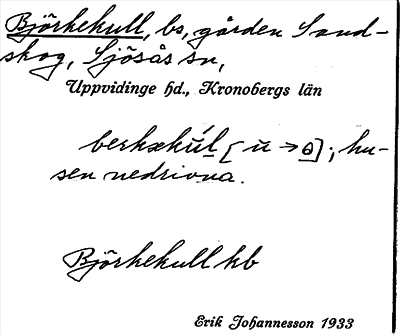 Björkekull, bs, gården Sand-
skog, Sjösås sn,
Uppvidinge hd., Kronobergs län
berkækúl [ u → ɵ]; hu-
sen nedrivna.
Björkekull kb
Erik Johannesson 1933